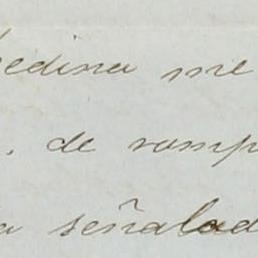 edina me
. de romp
a señalad